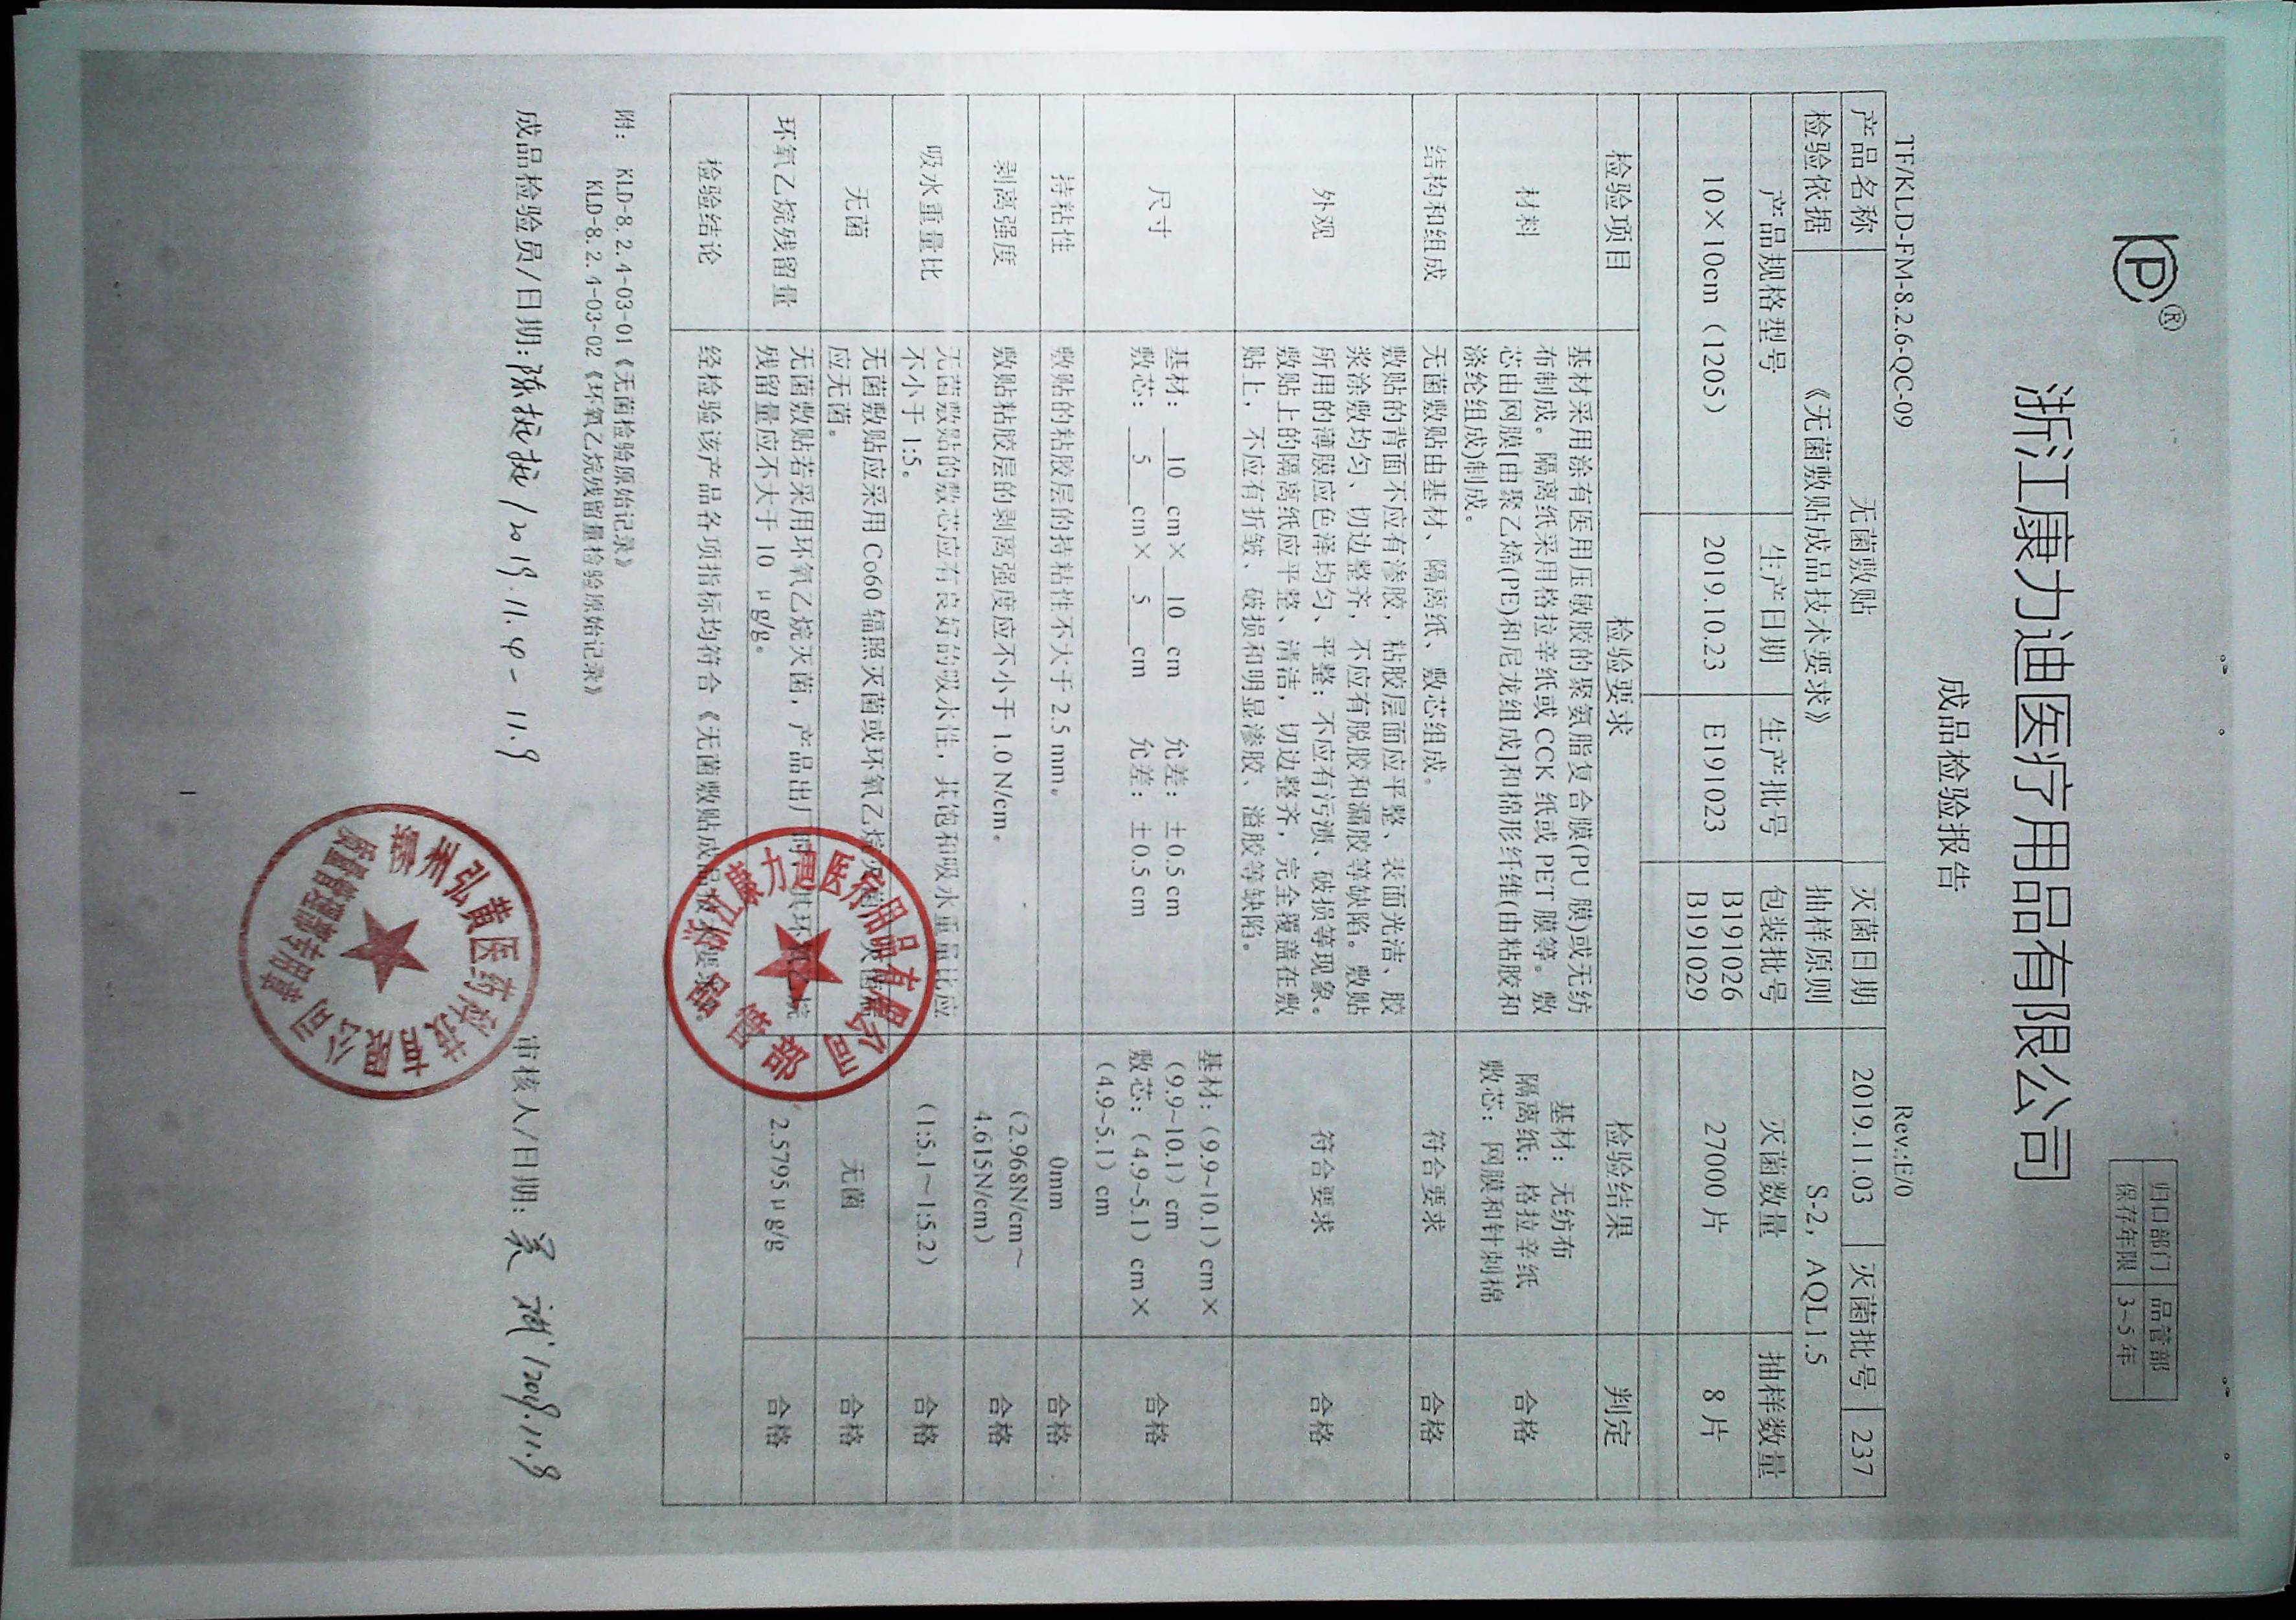 KP®
归口部门 品管部
保存年限 3~5 年
浙江康力迪医疗用品有限公司
成品检验报告
TF/KLD-FM-8.2.6-QC-09 Rev.:E/0
产品名称 无菌敷贴 灭菌日期 2019.11.03 灭菌批号 237
检验依据 《无菌敷贴成品技术要求》 抽样原则 S-2，AQL1.5
产品规格型号 生产日期 生产批号 包装批号 灭菌数量 抽样数量
10×10cm（1205） 2019.10.23 E191023 B191026 27000 片 8 片
B191029
检验项目 检验要求 检验结果 判定
材料 基材采用涂有医用压敏胶的聚氨脂复合膜(PU 膜)或无纺 基材：无纺布 合格
布制成。隔离纸采用格拉辛纸或 CCK 纸或 PET 膜等。敷 隔离纸：格拉辛纸
芯由网膜[由聚乙烯(PE)和尼龙组成]和棉形纤维(由粘胶和 敷芯：网膜和针刺棉
涤纶组成)制成。
结构和组成 无菌敷贴由基材、隔离纸、敷芯组成。 符合要求 合格
外观 敷贴的背面不应有渗胶，粘胶层面应平整、表面光洁、胶 符合要求 合格
浆涂敷均匀、切边整齐，不应有脱胶和漏胶等缺陷。敷贴
所用的薄膜应色泽均匀、平整；不应有污渍、破损等现象。
敷贴上的隔离纸应平整、清洁，切边整齐，完全覆盖在敷
贴上，不应有折皱、破损和明显渗胶、溢胶等缺陷。
尺寸 基材：10 cm×10 cm 允差：±0.5 cm 基材：（9.9~10.1）cm× 合格
敷芯：5 cm×5 cm 允差：±0.5 cm （9.9~10.1）cm
敷芯：（4.9~5.1）cm×
（4.9~5.1）cm
持粘性 敷贴的粘胶层的持粘性不大于 2.5 mm。 0mm 合格
剥离强度 敷贴粘胶层的剥离强度应不小于 1.0 N/cm。 （2.968N/cm～ 合格
4.615N/cm）
吸水重量比 无菌敷贴的敷芯应有良好的吸水性，其饱和吸水重量比应 （1:5.1～1:5.2） 合格
不小于 1:5。
无菌 无菌敷贴应采用 Co60 辐照灭菌或环氧乙烷灭菌，灭菌后 无菌 合格
应无菌。
环氧乙烷残留量 无菌敷贴若采用环氧乙烷灭菌，产品出厂时，其环氧乙烷 2.5795 μg/g 合格
残留量应不大于 10 μg/g。
检验结论 经检验该产品各项指标均符合《无菌敷贴成品技术要求》。
附： KLD-8.2.4-03-01《无菌检验原始记录》
KLD-8.2.4-03-02《环氧乙烷残留量检验原始记录》
成品检验员/日期: /2019.11.4-11.9 审核人/日期: /2019.11.9
浙江康力迪医疗用品有限公司
品管部
州弘黄医药科技有限公司
质量管理部专用章
1